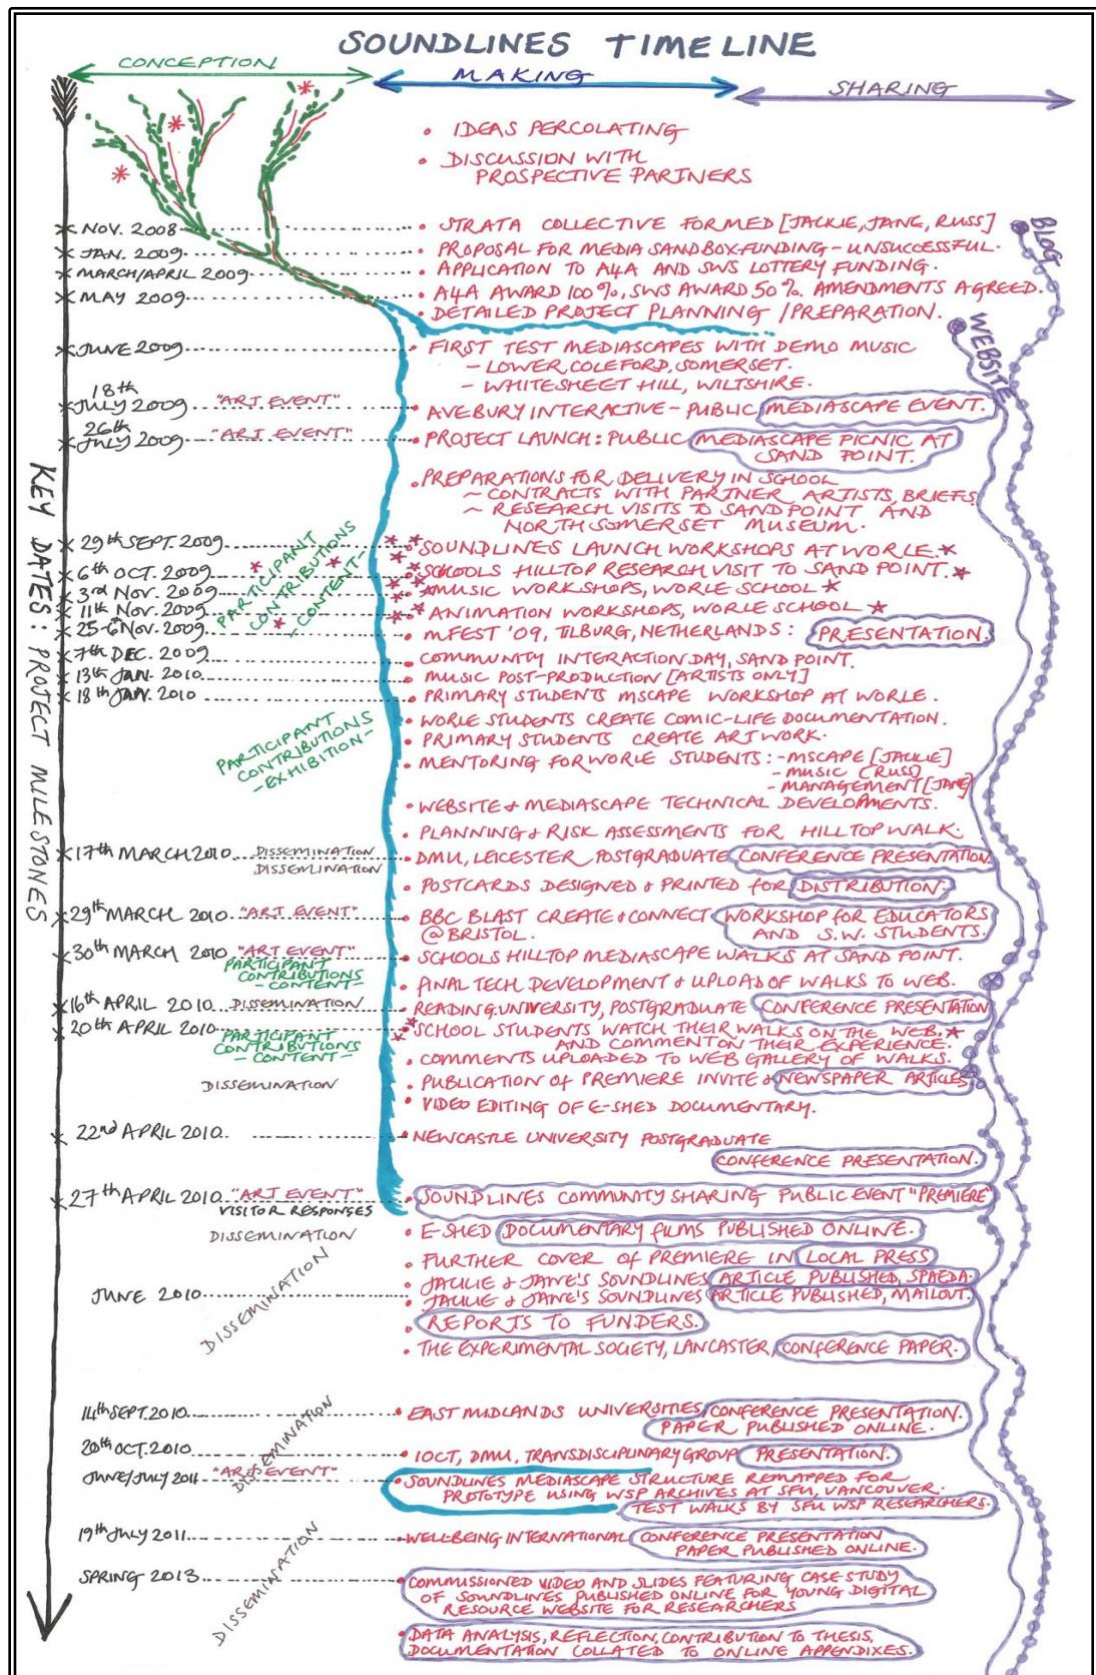 SOUNDLINES TIMELINE
CONCEPTION
MAKING
SHARING
KEY DATES: PROJECT MILESTONES
BLOG
WEBSITE
• IDEAS PERCOLATING
• DISCUSSION WITH
PROSPECTIVE PARTNERS
NOV. 2008 • STRATA COLLECTIVE FORMED [JACKIE, JANE, RUSS]
JAN. 2009 • PROPOSAL FOR MEDIA SANDBOX FUNDING - UNSUCCESSFUL.
MARCH/APRIL 2009 • APPLICATION TO A4A AND SWS LOTTERY FUNDING.
MAY 2009 • A4A AWARD 100%, SWS AWARD 50%. AMENDMENTS AGREED.
• DETAILED PROJECT PLANNING / PREPARATION.
JUNE 2009 • FIRST TEST MEDIASCAPES WITH DEMO MUSIC
- LOWER COLEFORD, SOMERSET.
- WHITESHEET HILL, WILTSHIRE.
18th
JULY 2009 "ART EVENT" • AVEBURY INTERACTIVE - PUBLIC MEDIASCAPE EVENT.
26th
JULY 2009 "ART EVENT" • PROJECT LAUNCH: PUBLIC MEDIASCAPE PICNIC AT
SAND POINT.
• PREPARATIONS FOR DELIVERY IN SCHOOL
~ CONTRACTS WITH PARTNER ARTISTS, BRIEFS
~ RESEARCH VISITS TO SANDPOINT AND
NORTH SOMERSET MUSEUM.
PARTICIPANT
CONTRIBUTIONS
- CONTENT -
29th SEPT. 2009 • SOUNDLINES LAUNCH WORKSHOPS AT WORLE.
6th OCT. 2009 • SCHOOLS HILLTOP RESEARCH VISIT TO SAND POINT.
3rd NOV. 2009 • MUSIC WORKSHOPS, WORLE SCHOOL
11th NOV. 2009 • ANIMATION WORKSHOPS, WORLE SCHOOL
25-6th NOV. 2009 • MFEST '09, TILBURG, NETHERLANDS: PRESENTATION.
7th DEC. 2009 • COMMUNITY INTERACTION DAY, SAND POINT.
13th JAN. 2010 • MUSIC POST-PRODUCTION [ARTISTS ONLY]
18th JAN. 2010 • PRIMARY STUDENTS MSCAPE WORKSHOP AT WORLE.
PARTICIPANT
CONTRIBUTIONS
- EXHIBITION -
• WORLE STUDENTS CREATE COMIC-LIFE DOCUMENTATION.
• PRIMARY STUDENTS CREATE ARTWORK.
• MENTORING FOR WORLE STUDENTS: - MSCAPE [JACKIE]
- MUSIC [RUSS]
- MANAGEMENT [JANE]
• WEBSITE & MEDIASCAPE TECHNICAL DEVELOPMENTS.
• PLANNING & RISK ASSESSMENTS FOR HILLTOP WALK.
17th MARCH 2010 DISSEMINATION • DMU, LEICESTER POSTGRADUATE CONFERENCE PRESENTATION.
DISSEMINATION
• POSTCARDS DESIGNED & PRINTED FOR DISTRIBUTION.
29th MARCH 2010 "ART EVENT" • BBC BLAST CREATE & CONNECT WORKSHOP FOR EDUCATORS
@BRISTOL. AND S.W. STUDENTS.
30th MARCH 2010 "ART EVENT" • SCHOOLS HILLTOP MEDIASCAPE WALKS AT SAND POINT.
PARTICIPANT
CONTRIBUTIONS
- CONTENT -
• FINAL TECH DEVELOPMENT & UPLOAD OF WALKS TO WEB.
16th APRIL 2010 DISSEMINATION • READING UNIVERSITY, POSTGRADUATE CONFERENCE PRESENTATION
20th APRIL 2010 • SCHOOL STUDENTS WATCH THEIR WALKS ON THE WEB.
AND COMMENT ON THEIR EXPERIENCE.
PARTICIPANT
CONTRIBUTIONS
- CONTENT -
• COMMENTS UPLOADED TO WEB GALLERY OF WALKS.
DISSEMINATION • PUBLICATION OF PREMIERE INVITE & NEWSPAPER ARTICLES
• VIDEO EDITING OF E-SHED DOCUMENTARY.
22nd APRIL 2010 • NEWCASTLE UNIVERSITY POSTGRADUATE
CONFERENCE PRESENTATION.
27th APRIL 2010 "ART EVENT" • SOUNDLINES COMMUNITY SHARING PUBLIC EVENT "PREMIERE"
VISITOR RESPONSES
DISSEMINATION • E-SHED DOCUMENTARY FILMS PUBLISHED ONLINE.
DISSEMINATION
• FURTHER COVER OF PREMIERE IN LOCAL PRESS
• JACKIE & JANE'S SOUNDLINES ARTICLE PUBLISHED, SPAEDA.
JUNE 2010 • JACKIE & JANE'S SOUNDLINES ARTICLE PUBLISHED, MAILOUT.
• REPORTS TO FUNDERS.
• THE EXPERIMENTAL SOCIETY, LANCASTER, CONFERENCE PAPER.
14th SEPT. 2010 • EAST MIDLANDS UNIVERSITIES, CONFERENCE PRESENTATION.
PAPER PUBLISHED ONLINE.
DISSEMINATION
20th OCT. 2010 • IOCT, DMU, TRANSDISCIPLINARY GROUP PRESENTATION.
JUNE/JULY 2011 "ART EVENT" • SOUNDLINES MEDIASCAPE STRUCTURE REMAPPED FOR
PROTOTYPE USING WSP ARCHIVES AT SFU, VANCOUVER.
TEST WALKS BY SFU WSP RESEARCHERS.
19th JULY 2011 • WELLBEING INTERNATIONAL CONFERENCE PRESENTATION
PAPER PUBLISHED ONLINE.
DISSEMINATION
SPRING 2013 • COMMISSIONED VIDEO AND SLIDES FEATURING CASE STUDY
OF SOUNDLINES PUBLISHED ONLINE FOR YOUNG DIGITAL
RESOURCE WEBSITE FOR RESEARCHERS
• DATA ANALYSIS, REFLECTION, CONTRIBUTION TO THESIS,
DOCUMENTATION COLLATED TO ONLINE APPENDIXES.